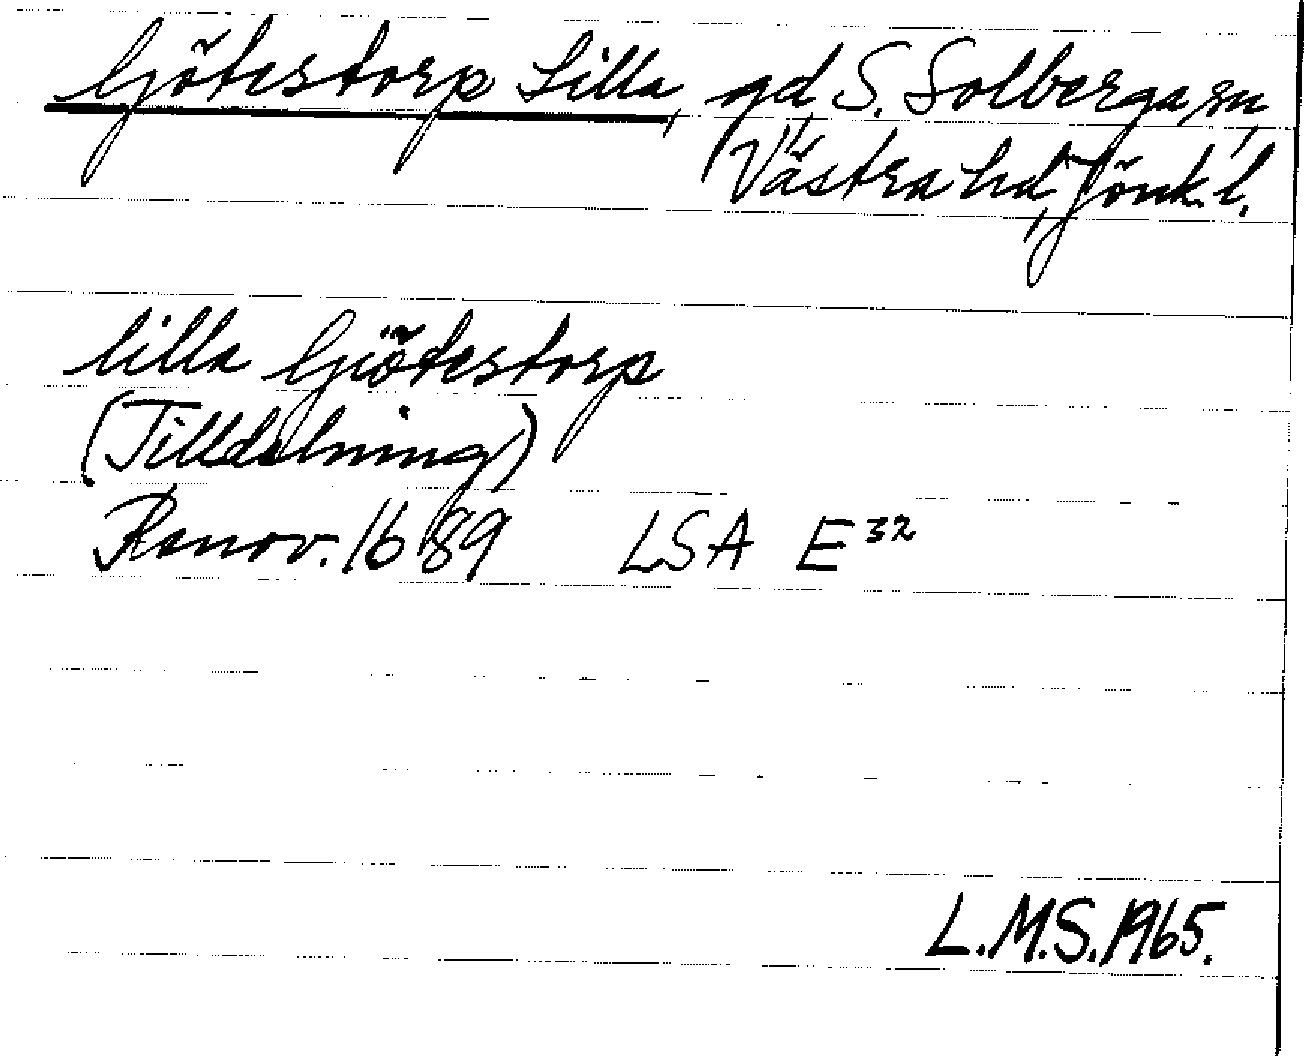 Gjötestorp Lilla, gd, S. Solberga sn,
Västra hd, Jönk. l.
lilla Gjötestorp
(Tilldelning)
Renov. 1689 LSA E 32
L.M.S. 1965.